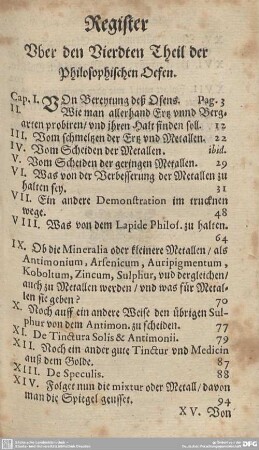 Register
Vber den Vierdten Theil der
Philosophischen Oefen.
Cap. I. VOn Bereytung deß Ofens. Pag. 3
II. Wie man allerhand Ertz vnnd Berg-
arten probiren/ vnd jhren Halt finden soll. 12
III. Vom schmeltzen der Ertz vnd Metallen. 22
IV. Vom Scheiden der Metallen. ibid.
V. Vom Scheiden der geringen Metallen. 29
VI. Was von der Verbesserung der Metallen zu
halten sey. 31
VII. Ein andere Demonstration im trucknen
wege. 48
VIII. Was von dem Lapide Philos. zu halten.
64
IX. Ob die Mineralia oder kleinere Metallen/ als
Antimonium, Arsenicum, Auripigmentum,
Koboltum, Zincum, Sulphur, vnd dergleichen/
auch zu Metallen werden/ vnd was für Metal-
len sie geben? 70
X. Noch auff ein andere Weise den übrigen Sul-
phur von dem Antimon. zu scheiden. 77
XI. De Tinctura Solis & Antimonii. 79
XII. Noch ein ander gute Tinctur vnd Medicin
auß dem Golde. 87
XIII. De Speculis. 88
XIV. Folget nun die mixtur oder Metall/ davon
man die Spiegel geusset. 94
XV. Von